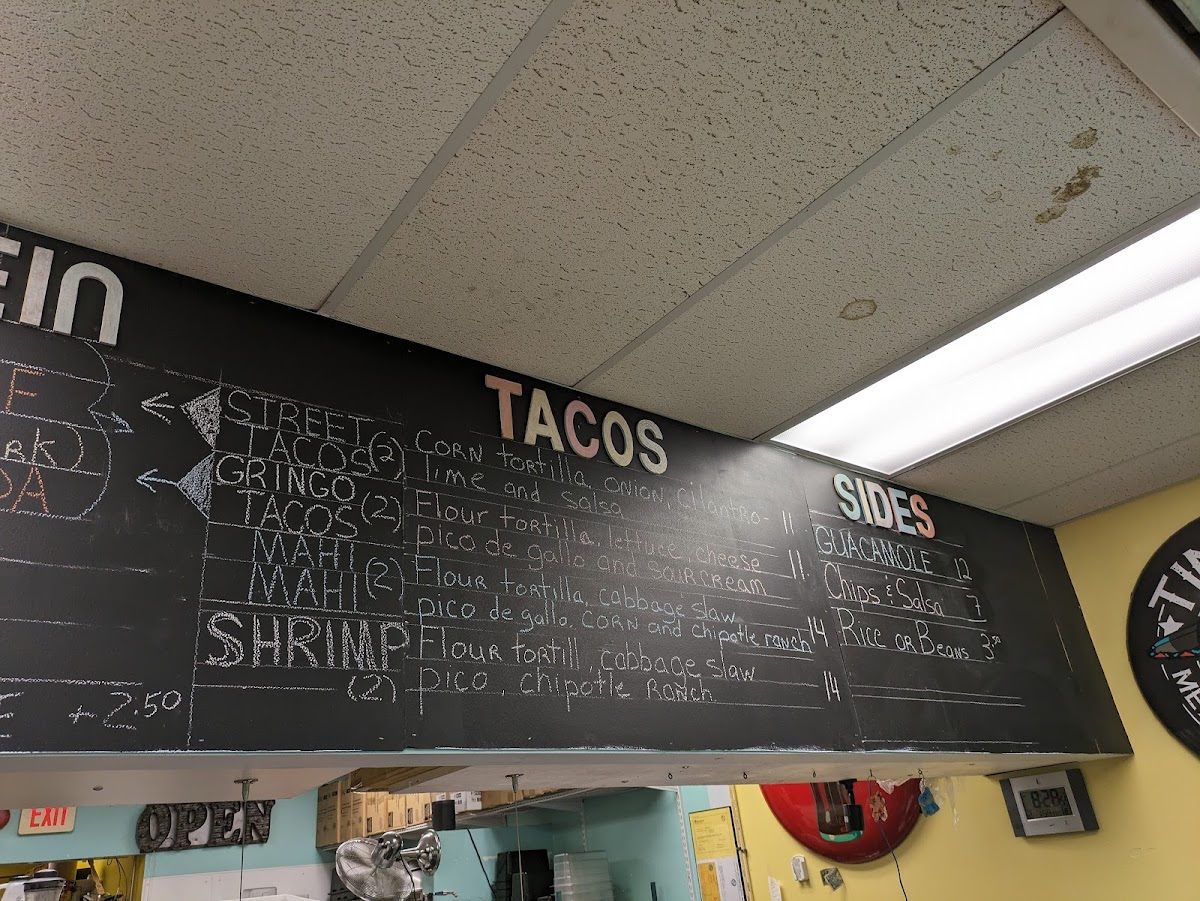 EIN
E
rk)
DA
+ 2.50
TACOS
STREET
TACOS (2)
CORN tortilla, onion, cilantro-
lime and salsa 11
GRINGO
TACOS (2)
Flour tortilla, lettuce, cheese
pico de gallo and sour cream 11.
MAHI
MAHI (2)
Flour tortilla, cabbage slaw
pico de gallo, CORN and chipotle ranch 14
SHRIMP
(2)
Flour tortill, cabbage slaw
pico, chipotle Ranch 14
SIDES
GUACAMOLE 12
Chips & Salsa 7
Rice or Beans 3.50
EXIT
OPEN
8:28